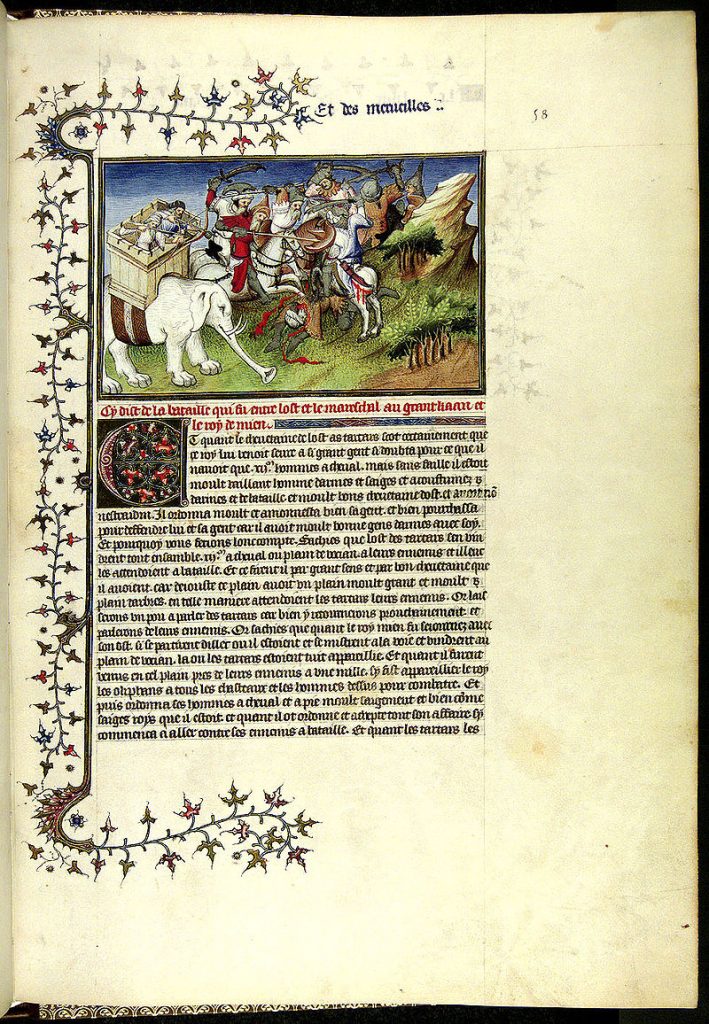 Et des merueilles
58
Cy dist de la bataille qui fu entre lost et le mareschal au grant kaan et
le roy de mien.
Et quant le cheuetaine de lost as tartars scot certainement que
ce roy lui venoit seure a si grant gent si doubta pour ce que il
nauoit que .xij. hommes a cheual. mais sans faille il estoit
moult vaillant homme darmes et saiges et acoustume
darmes et de bataille et moult bons cheuetaine dost. et
Il ordonna moult et amonnesta bien sa gent. et bien pourchassa
pour deffendre lui et sa gent car il auoit moult bonne gens darmes auec soy.
Et pourquoy vous feroie lonc compte. Sachies que lost des tartars sen vin
drent tout ensamble .xij. a cheual ou plain de vocian a leurs ennemis et illeuc
les attendoient a bataille. Et ce firent il par grant sens et par bon cheuetaine que
il auoient. car de iouste ce plain auoit vn plain moult grant et moult
plain darbres. en telle maniere attendoient les tartars leurs ennemis. Or lais
serons vn pou a parler des tartars car bien y retournerons prouchainement. et
parlerons de leurs ennemis. Or sachies que quant le roy mien fu seiournez auec
son ost. si se partirent dillec ou il estoient et se mistrent a la voie et vindrent au
plain de vocian. la ou les tartars estoient tuit appareillie. Et quant il furent
venus en cel plain pres de leurs ennemis a vne mille. sy fist appareillier le roy
les oliphans a tous les chasteaux et les hommes dessus pour combatre. Et
puis ordonna ses hommes a cheual et a pie moult saigement et bien côme
saiges roys que il estoit. et quant il ot ordonne et adrepte tout son affaire sy
commenca a aller contre ses ennemis a bataille. Et quant les tartars les